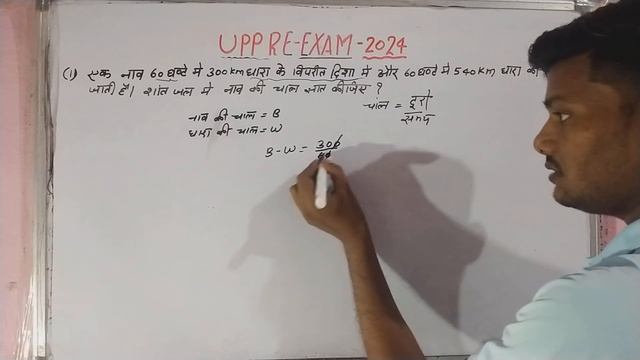 UPP RE-EXAM-2024
(1) एक नाव 60 घण्टे में 300km धारा के विपरीत दिशा में और 60 घण्टे में 540km धारा की
जाती है। शांत जल में नाव की चाल ज्ञात कीजिए ?
चाल = दूरी / समय
नाव की चाल = B
धारा की चाल = W
B-W = 300 / 60